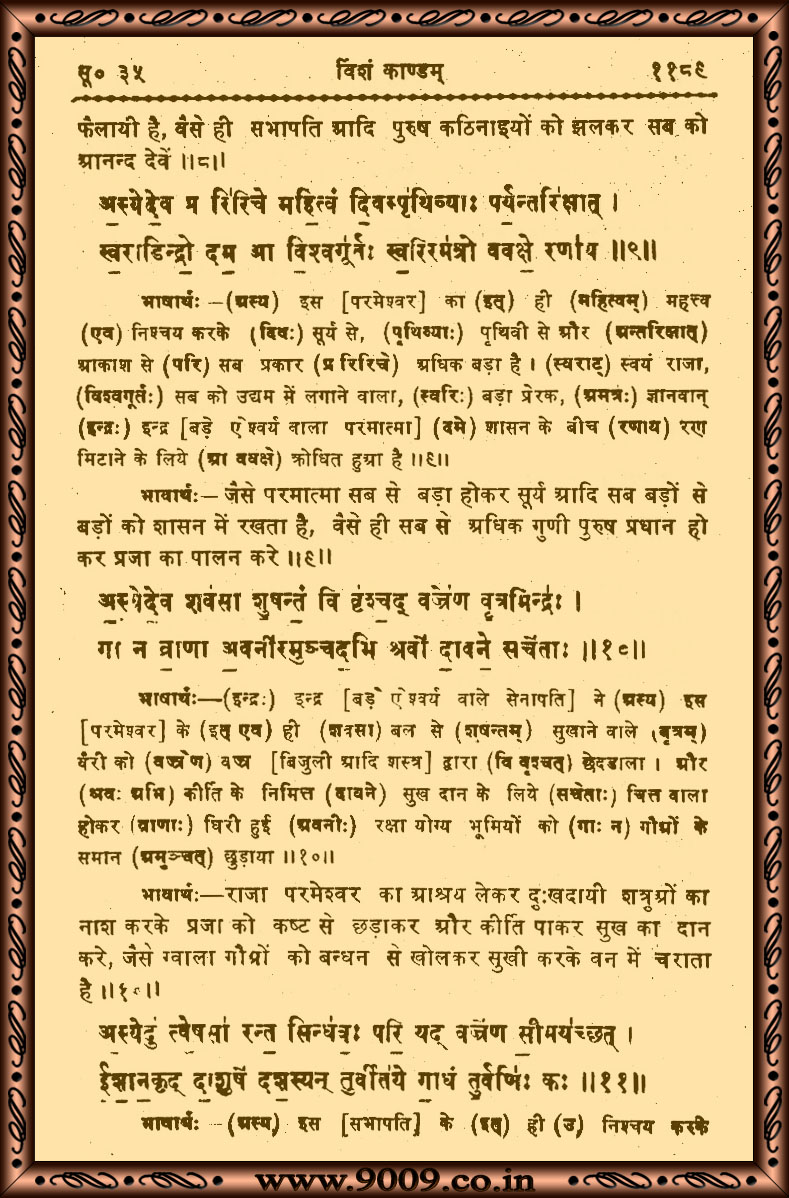 सू० ३५ विंशं काण्डम् ११८९
फैलायी है, वैसे ही सभापति आदि पुरुष कठिनाइयों को झलकर सब को
आनन्द देवें ॥८॥
अ॒स्येदे॒व प्र रि॑रिचे महि॒त्वं दि॒वस्पृ॑थि॒व्याः पर्य॒न्तरि॑क्षात् ।
स्व॒राडिन्द्रो॒ दम॒ आ वि॒श्वगू॑र्तः स्व॒रिरम॑त्रो ववक्षे॒ रणा॑य ॥९॥
भाषार्थः—(अस्य) इस [परमेश्वर] का (इत्) ही (महित्वम्) महत्त्व
(एव) निश्चय करके (दिवः) सूर्य से, (पृथिव्याः) पृथिवी से और (अन्तरिक्षात्)
आकाश से (परि) सब प्रकार (प्र रिरिचे) अधिक बड़ा है । (स्वराट्) स्वयं राजा,
(विश्वगूर्तः) सब को उद्यम में लगाने वाला, (स्वरिः) बड़ा प्रेरक, (अमत्रः) ज्ञानवान्
(इन्द्रः) इन्द्र [बड़े ऐश्वर्य वाला परमात्मा] (दमे) शासन के बीच (रणाय) रण
मिटाने के लिये (आ ववक्षे) क्रोधित हुआ है ॥९॥
भावार्थः—जैसे परमात्मा सब से बड़ा होकर सूर्य आदि सब बड़ों से
बड़ों को शासन में रखता है, वैसे ही सब से अधिक गुणी पुरुष प्रधान हो
कर प्रजा का पालन करे ॥९॥
अ॒स्येदे॒व शव॑सा शु॒षन्तं॒ वि वृ॑श्च॒द् वज्रे॑ण वृ॒त्रमिन्द्रः॑ ।
गा न व्रा॒णा अ॒वनी॑रमुञ्चद॒भि श्रवो॑ दा॒वने॒ सचे॑ताः ॥१०॥
भाषार्थः—(इन्द्रः) इन्द्र [बड़े ऐश्वर्य वाले सेनापति] ने (अस्य) इस
[परमेश्वर] के (इत् एव) ही (शवसा) बल से (शषन्तम्) सुखाने वाले (वृत्रम्)
वैरी को (वज्रेण) वज्र [बिजुली आदि शस्त्र] द्वारा (वि वृश्चत्) छेदडाला । और
(श्रवः अभि) कीर्ति के निमित्त (दावने) सुख दान के लिये (सचेताः) चित्त वाला
होकर (व्राणाः) घिरी हुई (अवनीः) रक्षा योग्य भूमियों को (गाः न) गौओं के
समान (अमुञ्चत्) छुड़ाया ॥१०॥
भावार्थः—राजा परमेश्वर का आश्रय लेकर दुःखदायी शत्रुओं का
नाश करके प्रजा को कष्ट से छड़ाकर और कीर्ति पाकर सुख का दान
करे, जैसे ग्वाला गौओं को बन्धन से खोलकर सुखी करके वन में चराता
है ॥१०॥
अ॒स्येदु॑ त्वे॒षसा॑ रन्त॒ सिन्ध॑वः॒ परि॒ यद् वज्रे॑ण सी॒मय॑च्छत् ।
ई॒शा॒न॒कृद् दा॒शुषे॑ दश॒स्यन् तु॒र्वीत॑ये गा॒धं तु॒र्वणिः॑ कः ॥११॥
भाषार्थः—(अस्य) इस [सभापति] के (इत्) ही (उ) निश्चय करके
www.9009.co.in